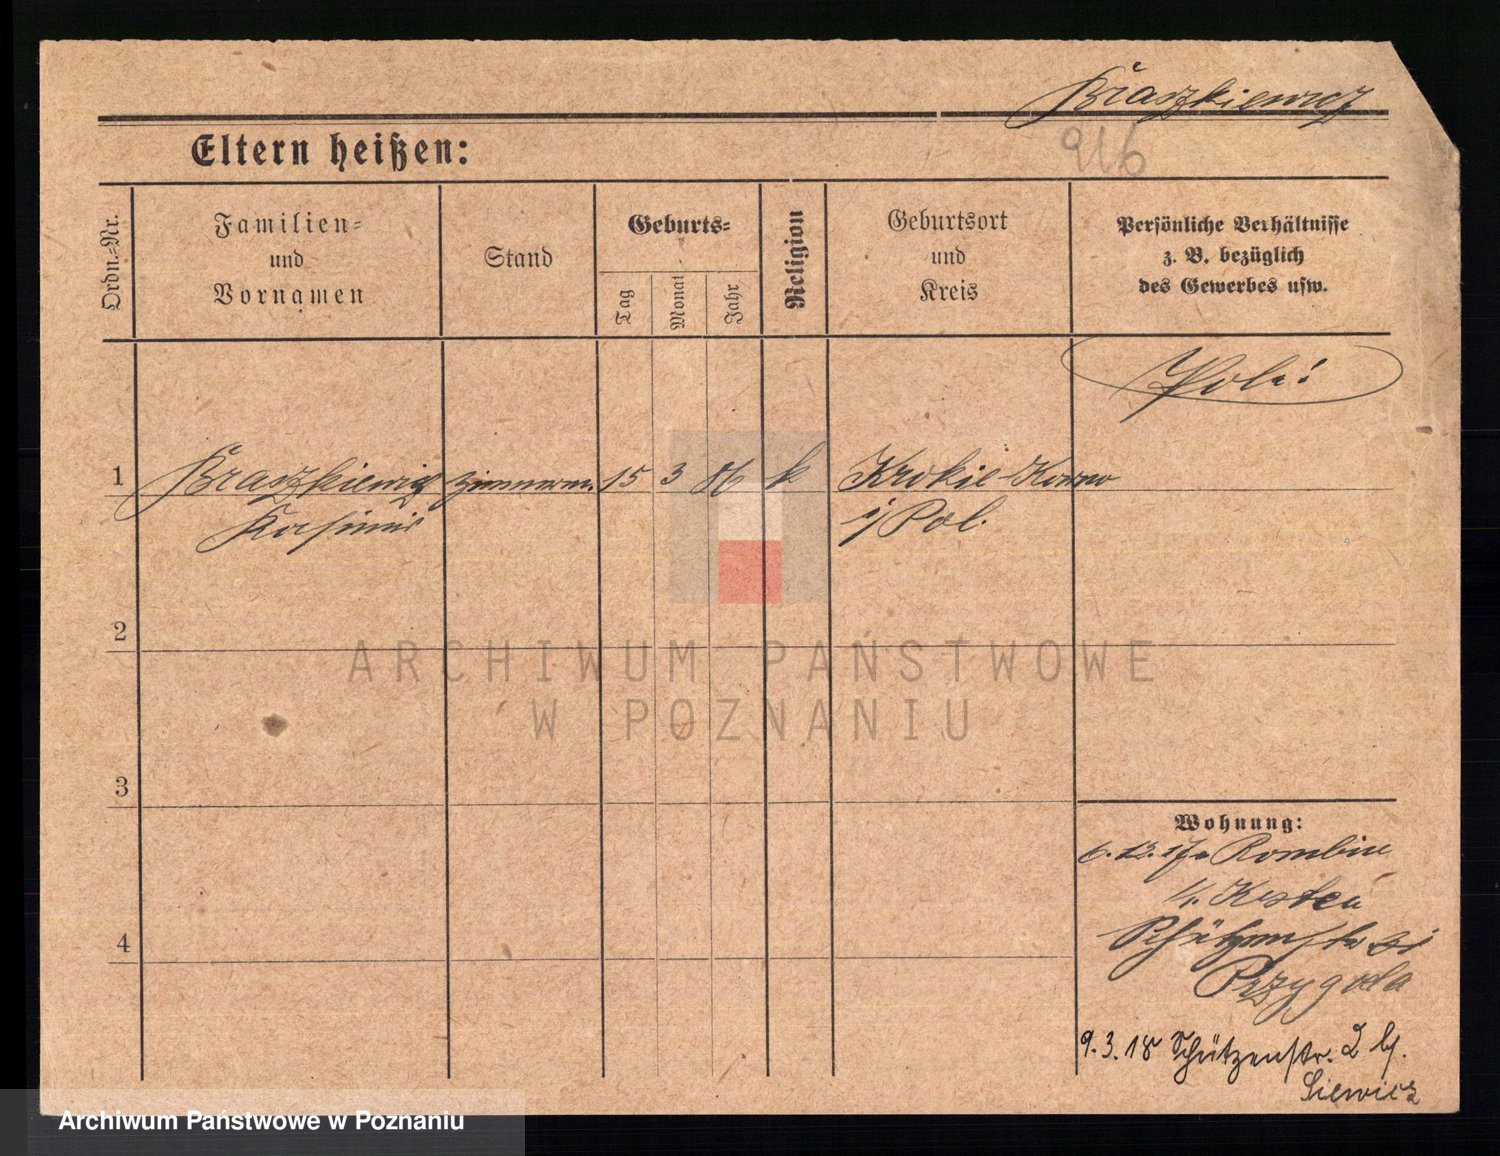 Braszkiewicz
916
Eltern heißen:
Ordn.-Nr.
Familien-
und
Vornamen
Stand
Geburts-
Tag
Monat
Jahr
Religion
Geburtsort
und
Kreis
Persönliche Verhältnisse
z. B. bezüglich
des Gewerbes usw.
Pole!
1 Braszkiewicz Zimmerm. 15 3 86 k
Kasimir
i/Pol.
2
3
4
ARCHIWUM PAŃSTWOWE
W POZNANIU
Wohnung:
6.12.17
Przygoda
9.3.18 Schützenstr. 2 bj.
Siewicz
Archiwum Państwowe w Poznaniu